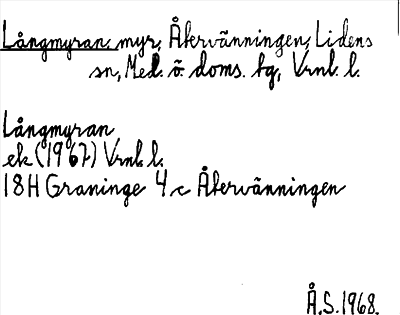 Långmyran, myr, Återvänningen, Lidens
sn, Med. ö. doms. tg, Vrnl. l.
Långmyran
ek (1967) Vrnl. l.
18H Graninge 4c Återvänningen
Å.S. 1968.